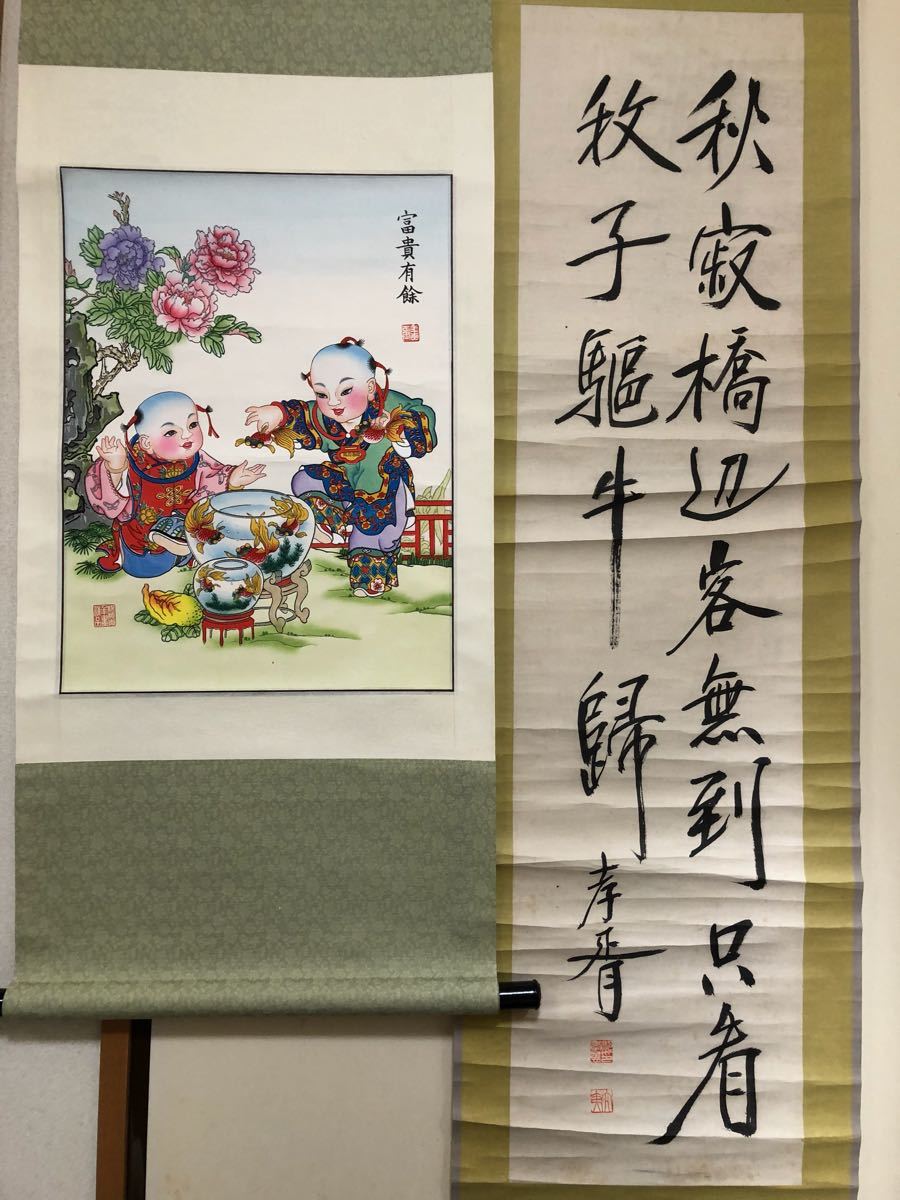 富貴有餘
秋寂橋辺客無到只看
牧子驅牛歸
孝胥